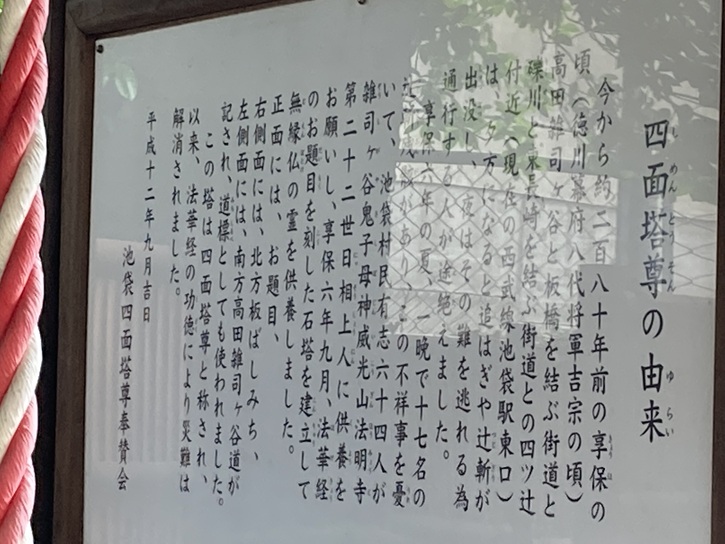 四面塔尊の由来
しめんとうそん ゆらい
今から約二百八十年前の享保の
頃（徳川幕府八代将軍吉宗の頃）
高田雑司ヶ谷と板橋を結ぶ街道と
礫川と東長崎を結ぶ街道との四ツ辻
付近（現在の西武線池袋駅東口）
は、夕方になると追はぎや辻斬が
出没し、夜はその難を逃れる為
通行する人が途絶えました。
享保六年の夏、一晩で十七名の
があり、この不祥事を憂
いて、池袋村民有志六十四人が
雑司ヶ谷鬼子母神威光山法明寺
第二十二世日相上人に供養を
お願いし、享保六年九月、法華経
のお題目を刻した石塔を建立して
無縁仏の霊を供養しました。
正面には、お題目、
右側面には、北方板ばしみち、
左側面には、南方高田雑司ヶ谷道が
記され、道標としても使われました。
この塔は四面塔尊と称され、
以来、法華経の功徳により災難は
解消されました。
平成十二年九月吉日
池袋四面塔尊奉賛会